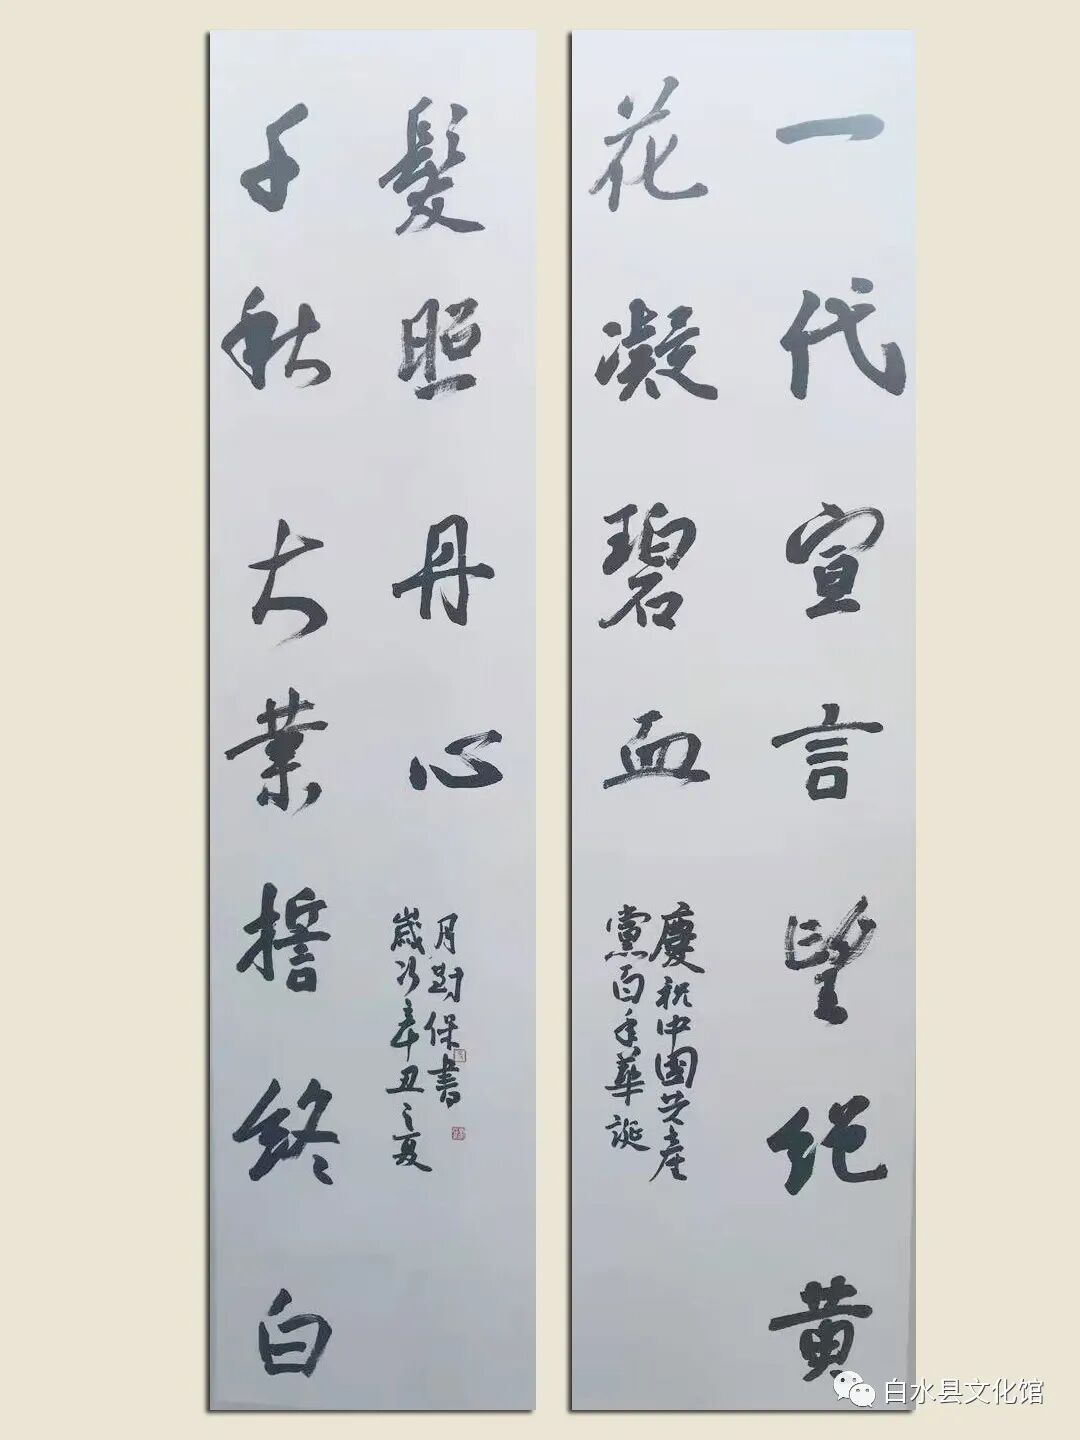 一代宣言望絕黄
花凝碧血
慶祝中國共産
黨百年華誕
千秋大業誓終白
髮照丹心
歲次辛丑之夏
月保書
白水县文化馆